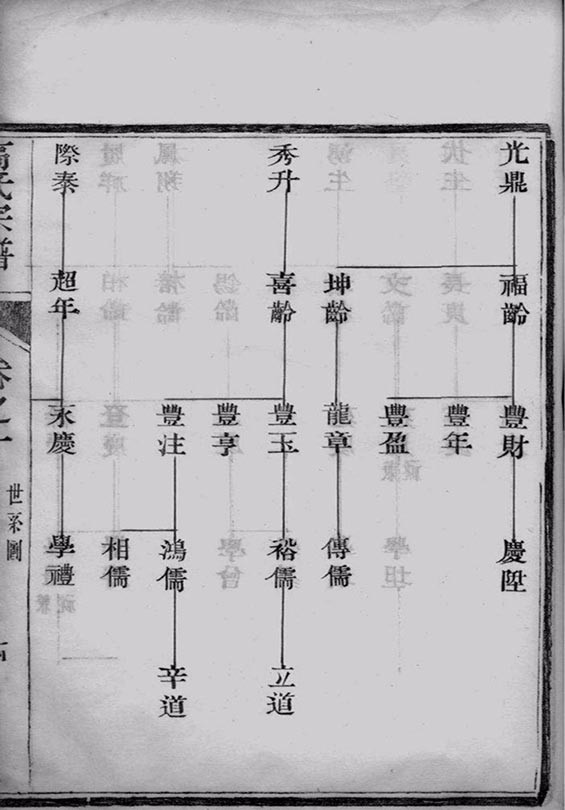 光鼎
秀升
際泰
福齡
坤齡
喜齡
超年
豐財
豐年
豐盈
龍章
豐玉
豐亨
豐注
永慶
慶陞
傳儒
裕儒
鴻儒
相儒
學禮
立道
辛道
世系圖